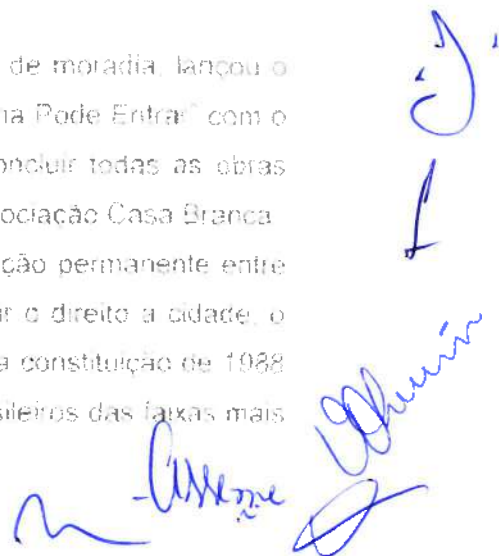 de moradia, lançou o
na Pode Entrar" com o
oncluir todas as obras
ociação Casa Branca
ção permanente entre
ir o direito a cidade, o
a constituição de 1988
sileiros das faixas mais